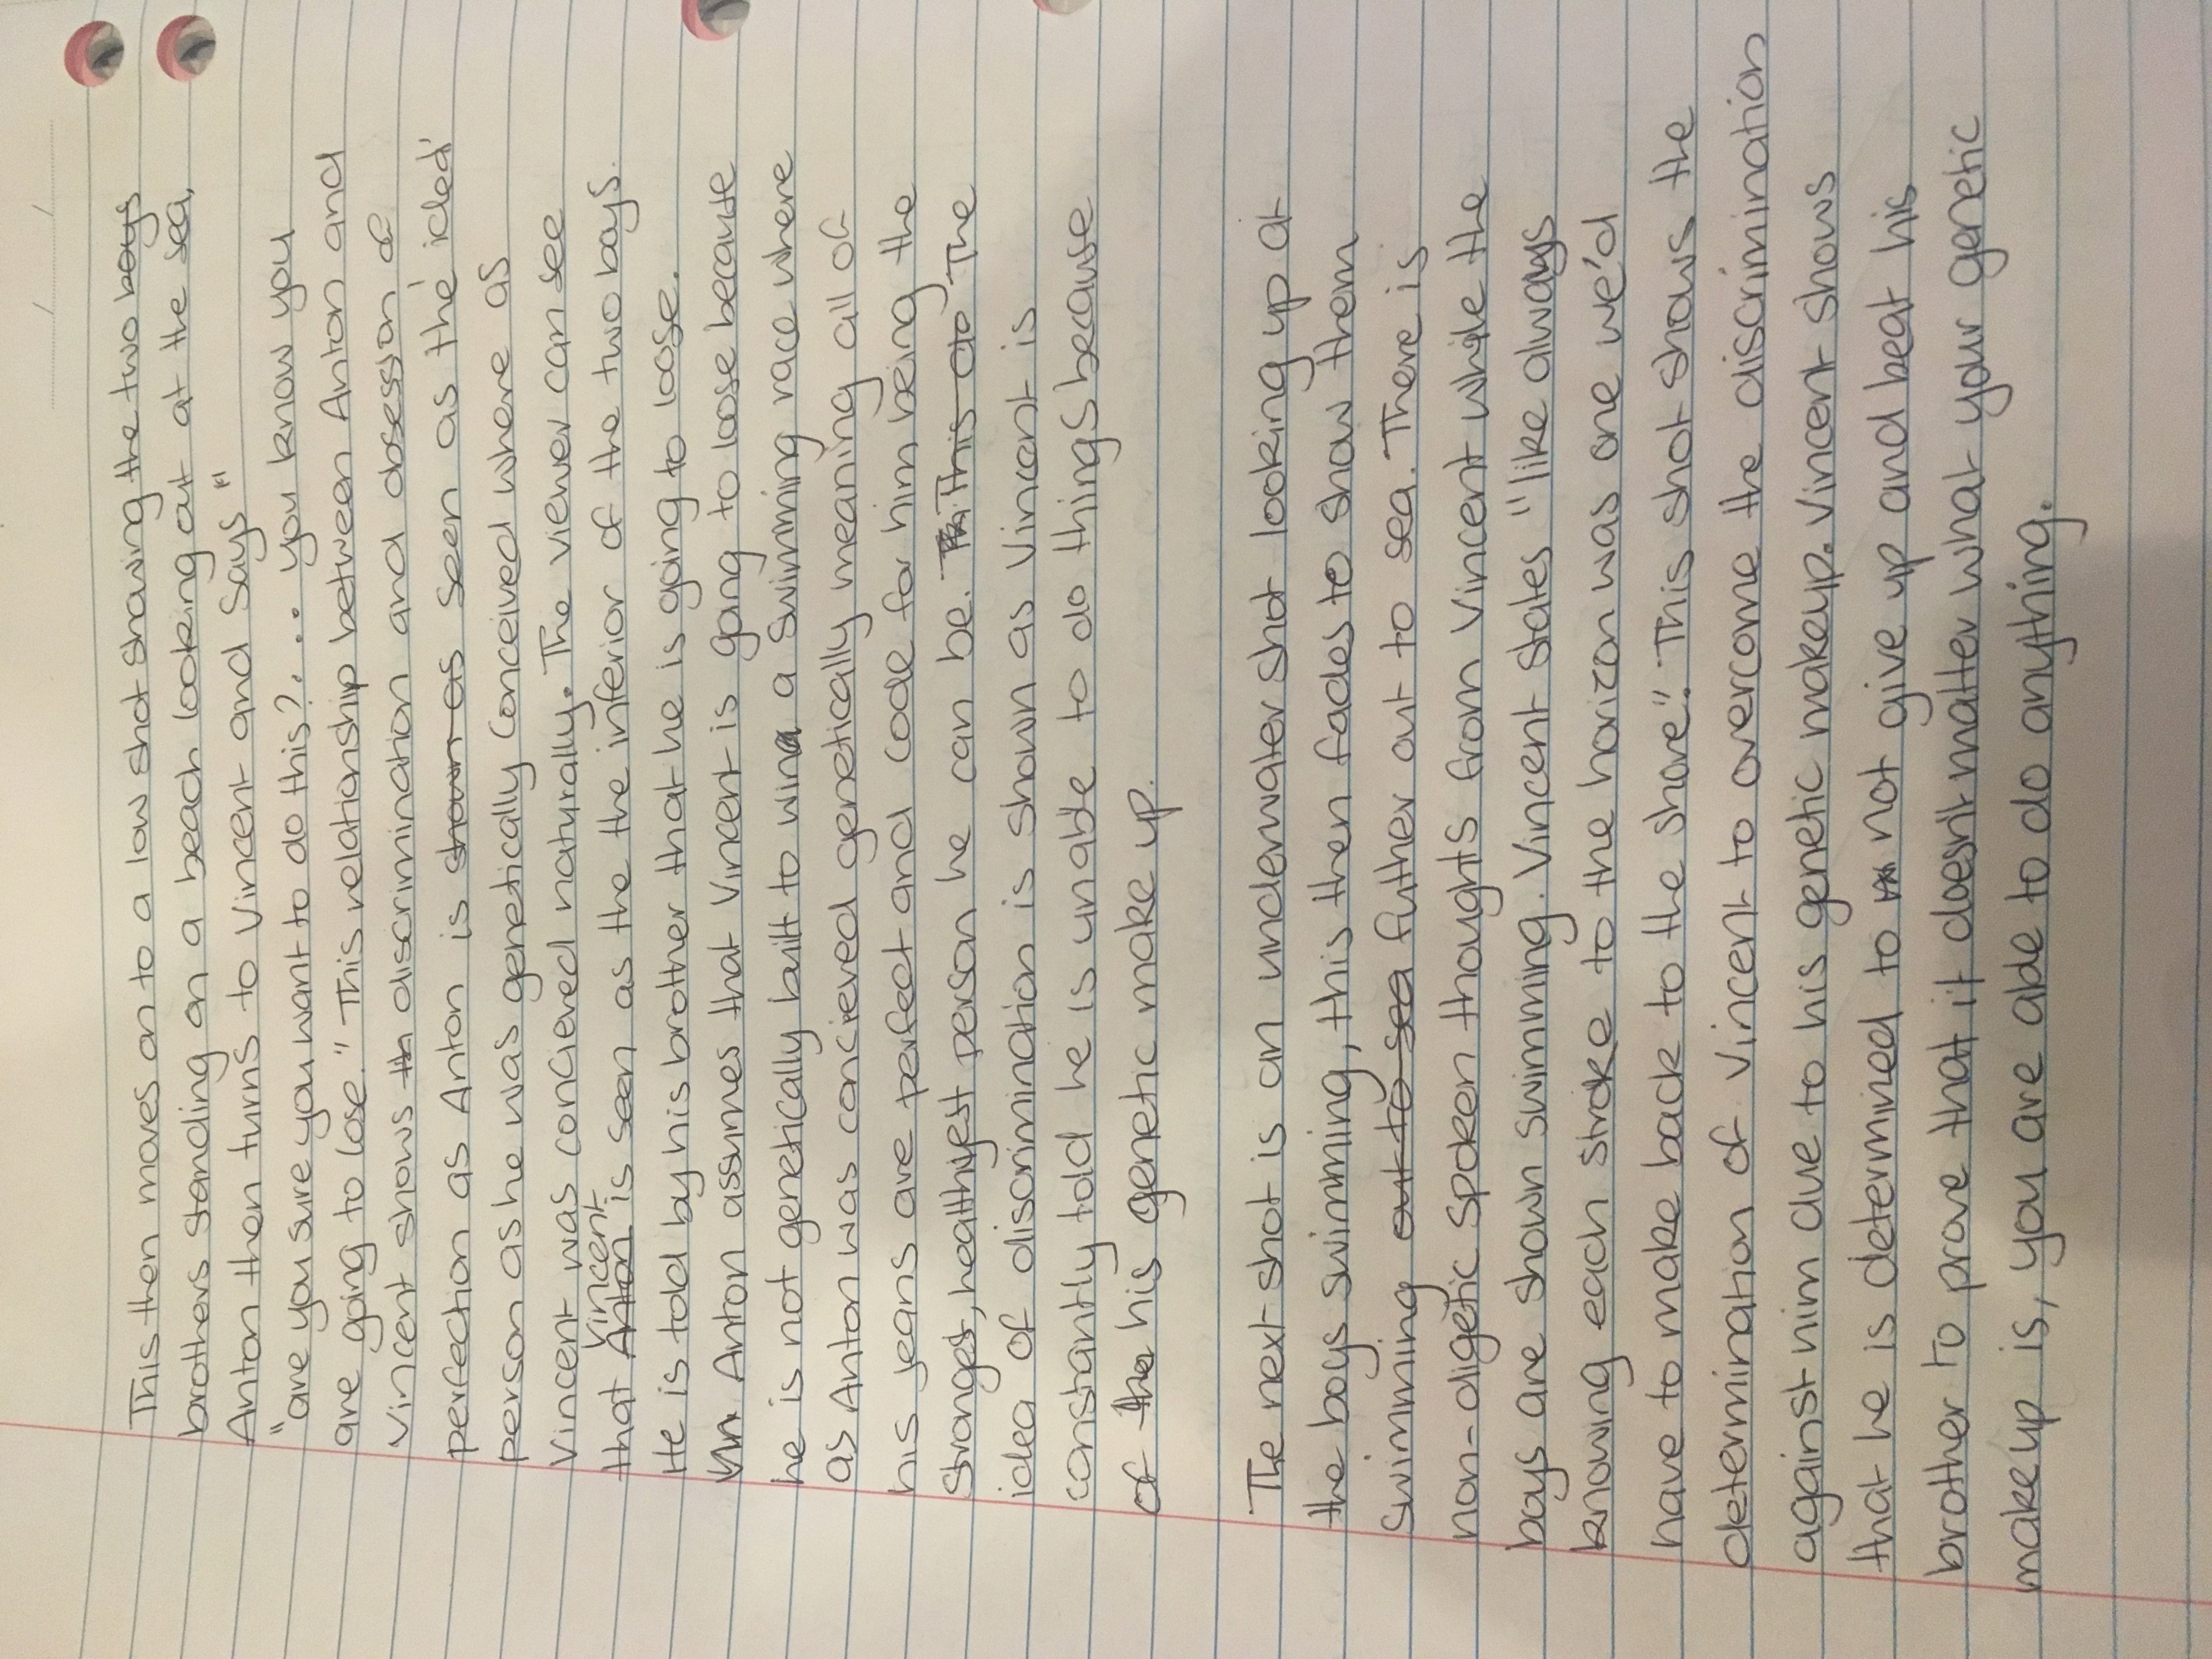 This then moves on to a low shot showing the two boys
brothers standing on a beach looking out at the sea,
Anton then turns to Vincent and says"
"are you sure you want to do this?... you know you
are going to lose." This relationship between Anton and
Vincent shows discrimination and obsession of
perfection as Anton is shown as seen as the 'ideal'
person as he was genetically conceived where as
Vincent was concieved naturally. The viewer can see
that Anton Vincent is seen as the the inferior of the two boys.
He is told by his brother that he is going to loose.
Anton assumes that Vincent is going to loose because
he is not genetically built to win a swimming race where
as Anton was concieved genetically meaning all of
his jeans are perfect and code for him being the
strongest, healthiyest person he can be. This do The
idea of discrimination is shown as Vincent is
constantly told he is unable to do things because
of the his genetic make up.
The next shot is an underwater shot looking up at
the boys swimming, this then fades to show them
swimming out to sea futher out to sea. There is
non-digetic spoken thoughts from Vincent while the
boys are shown swimming. Vincent states "like always
knowing each stroke to the horizon was one we'd
have to make back to the shore". This shot shows the
determination of Vincent to overcome the discrimination
against him due to his genetic makeup. Vincent shows
that he is determined to not give up and beat his
brother to prove that it doesn't matter what your genetic
makeup is, you are able to do anything.